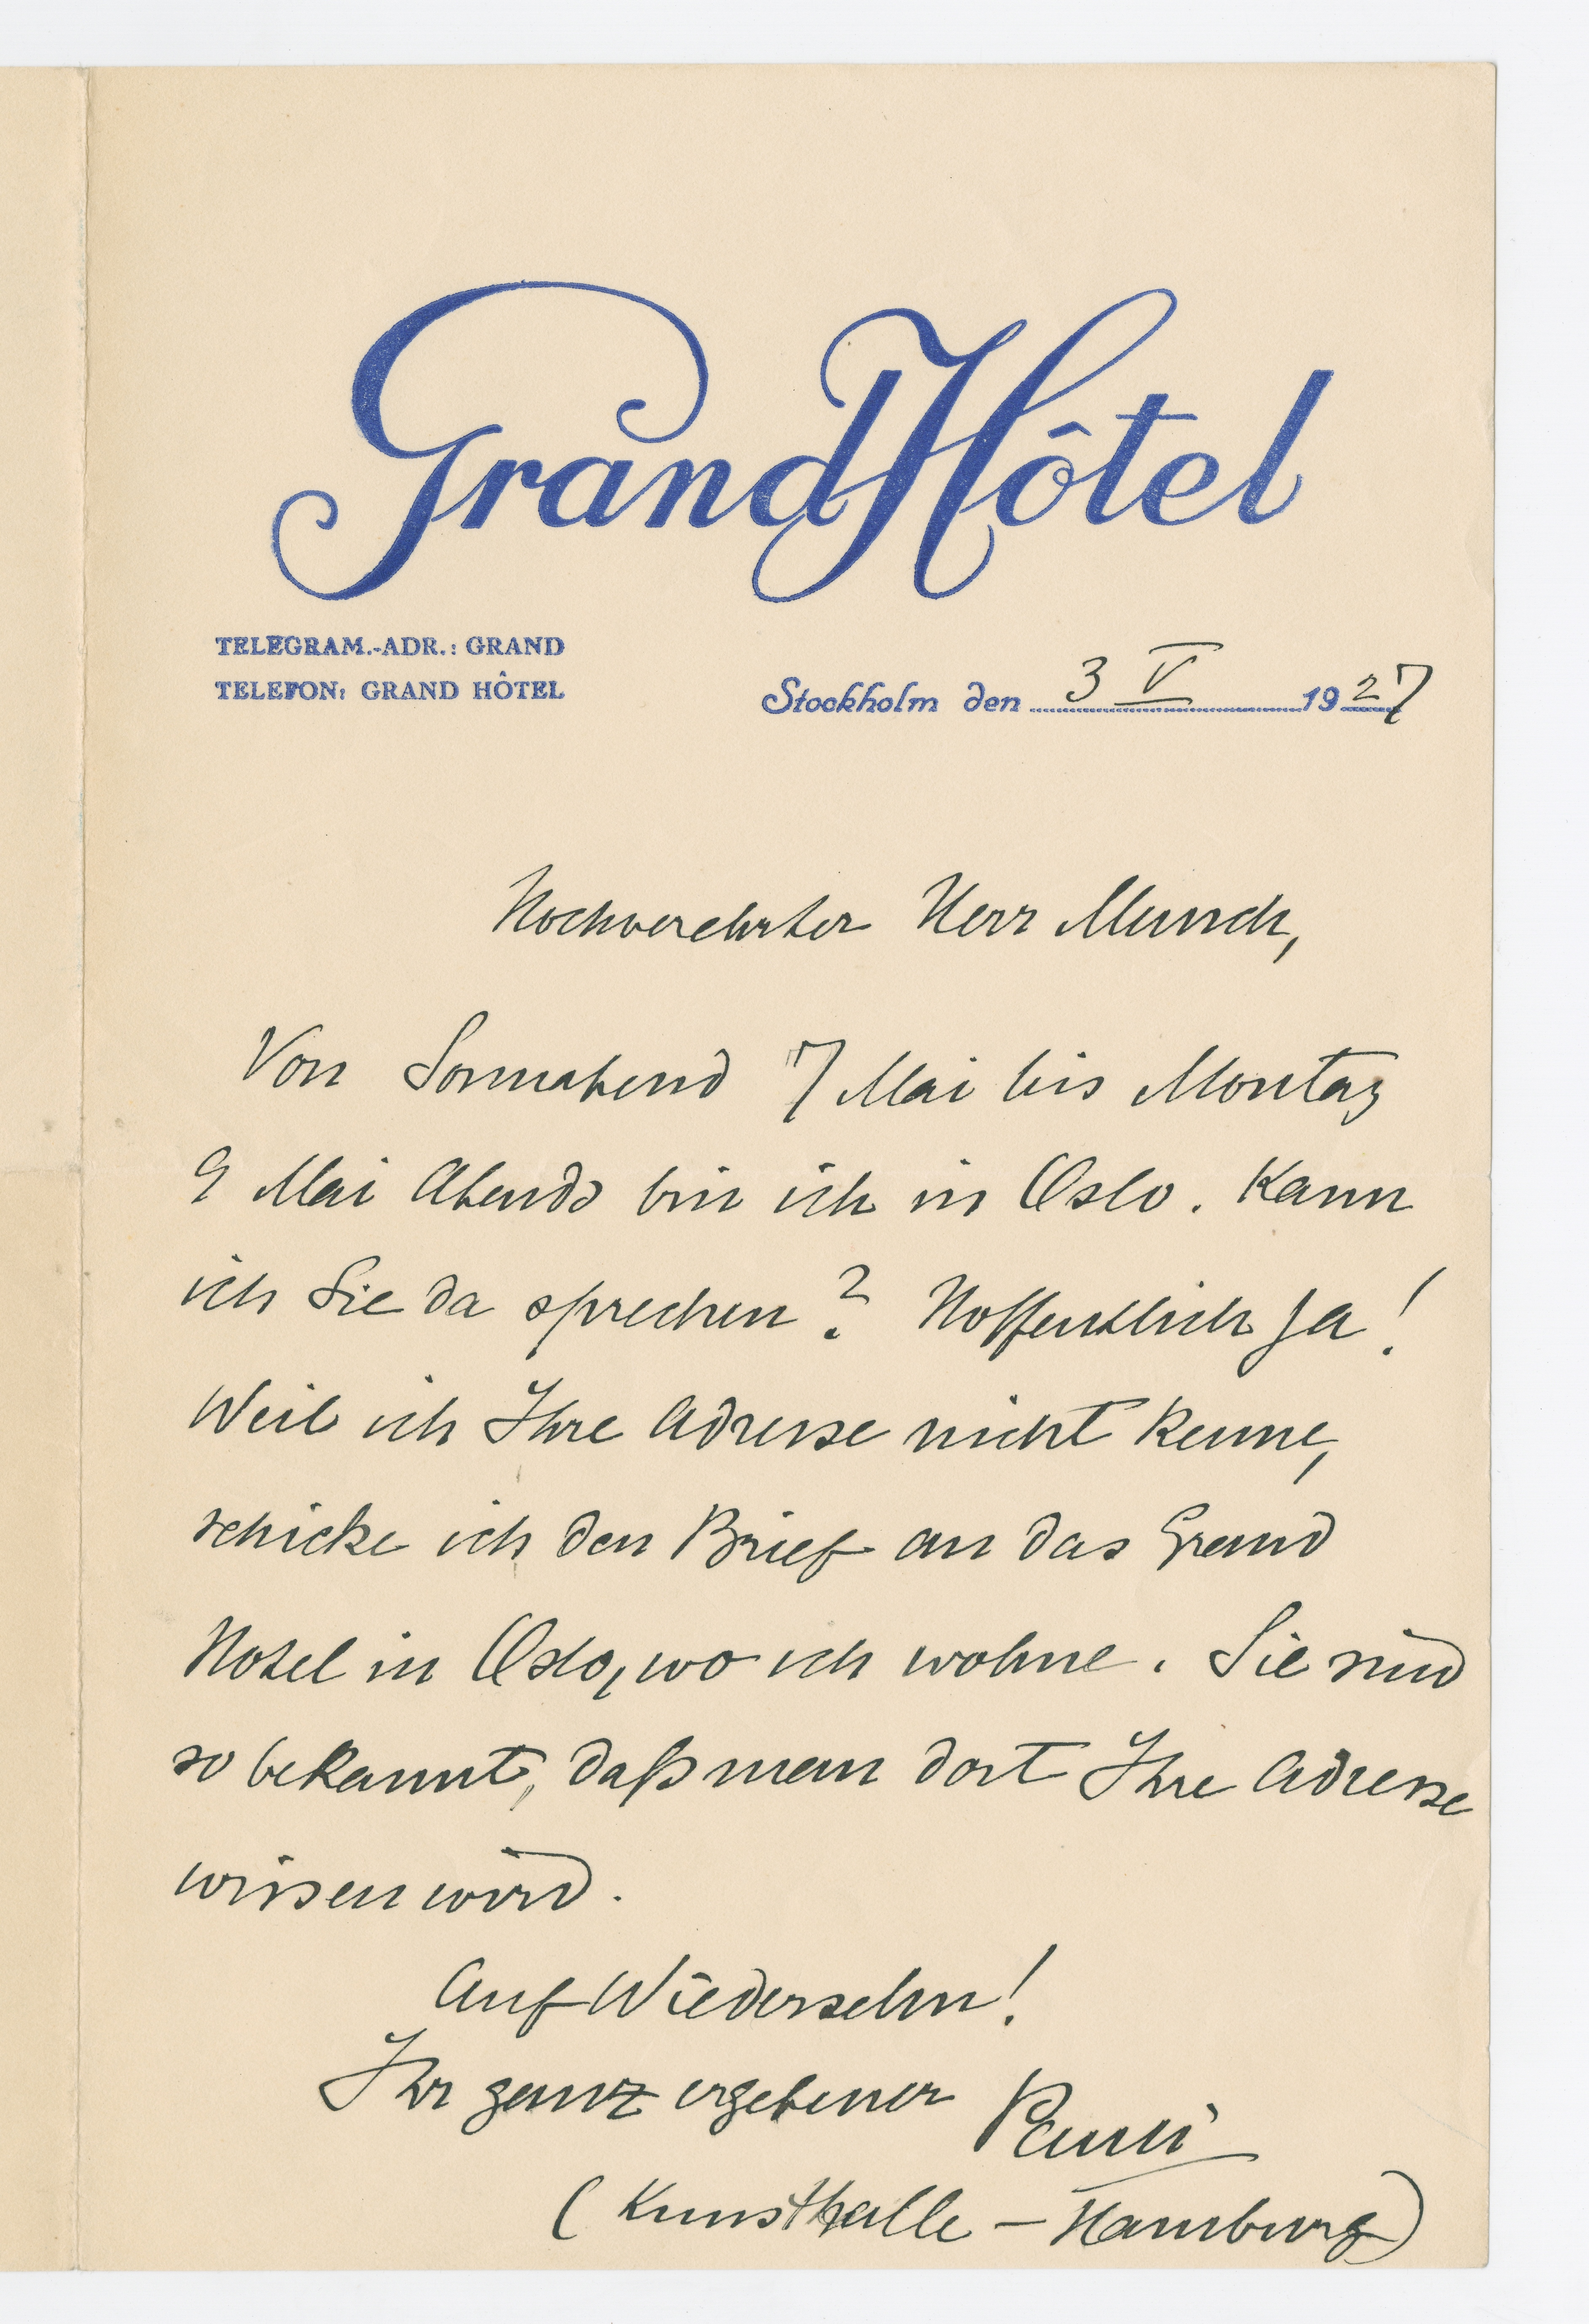 Grand Hôtel
TELEGRAM.-ADR.: GRAND
TELEFON: GRAND HÔTEL
Stockholm den 3 V 1927
Hochverehrter Herr Munch,
Von Sonnabend 7 Mai bis Montag
9 Mai Abends bin ich in Oslo. Kann
ich Sie da sprechen? Hoffentlich ja!
Weil ich Ihre Adresse nicht kenne,
schicke ich den Brief an das Grand
Hotel in Oslo, wo ich wohne. Sie sind
so bekannt, daß man dort Ihre Adresse
wissen wird.
Auf Wiedersehn!
Ihr ganz ergebener Pauli
(Kunsthalle – Hamburg)